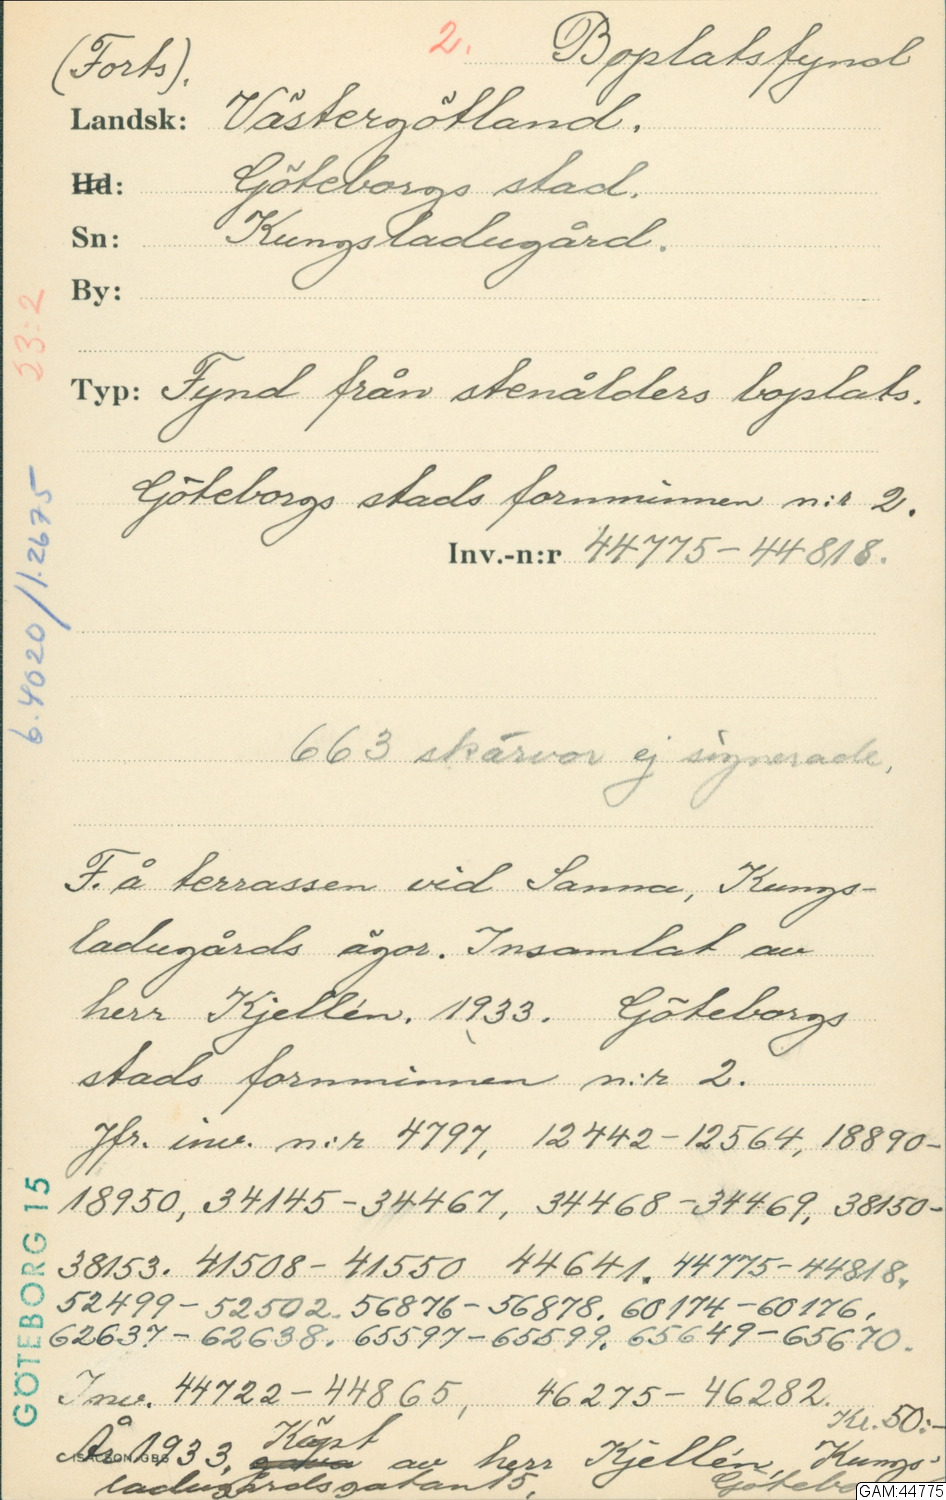 (Forts).
2. Boplatsfynd
Landsk: Västergötland.
Hd: Göteborgs stad.
Sn: Kungsladugård.
By:
Typ: Fynd från stenålders boplats.
Göteborgs stads fornminnen n:r 2.
Inv.-n:r 44775-44818.
663 skärvor ej signerade,
F. å terrassen vid Sanna, Kungs-
ladugårds ägor. Insamlat av
herr Kjellén. 1933. Göteborgs
stads fornminnen n:r 2.
Jfr. inv. n:r 4797, 12442-12564, 18890-
18950, 34145-34467, 34468-34469, 38150-
38153. 41508-41550 44641. 44775-44818.
52499-52502. 56876-56878. 60174-60176.
62637-62638. 65597-65599. 65649-65670.
Inv. 44722-44865, 46275-46282.
Kr. 50:-
År 1933. Köpt av herr Kjellén, Kungs-
ISACSON GBG
ladugårdsgatan 5, Götebo
23:2
6.4020/1.2675
GÖTEBORG 15
GAM:44775